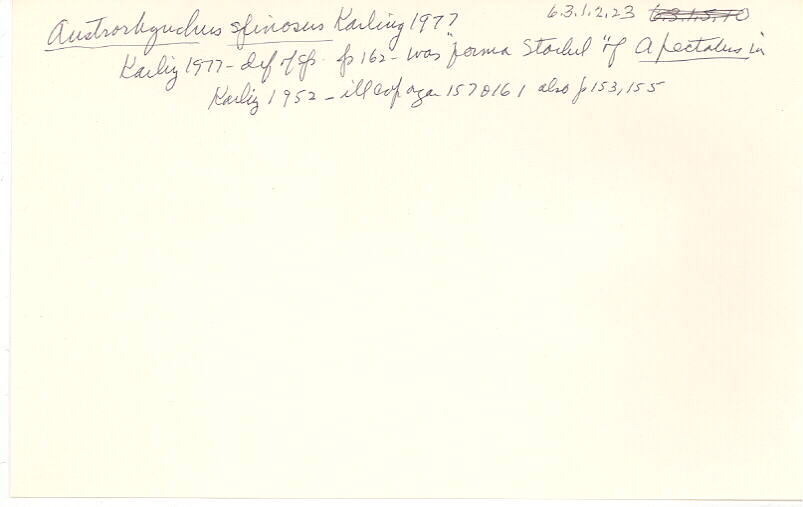 Austrorhynchus spinosus Karling 1977 6.3.1.2.23 6.3.1.5.10
Karling 1977 - def of sp. p 162 - was "forma Stachel" of A pectatus in
Karling 1952 - ill cop organ 157 & 161 also p 153, 155